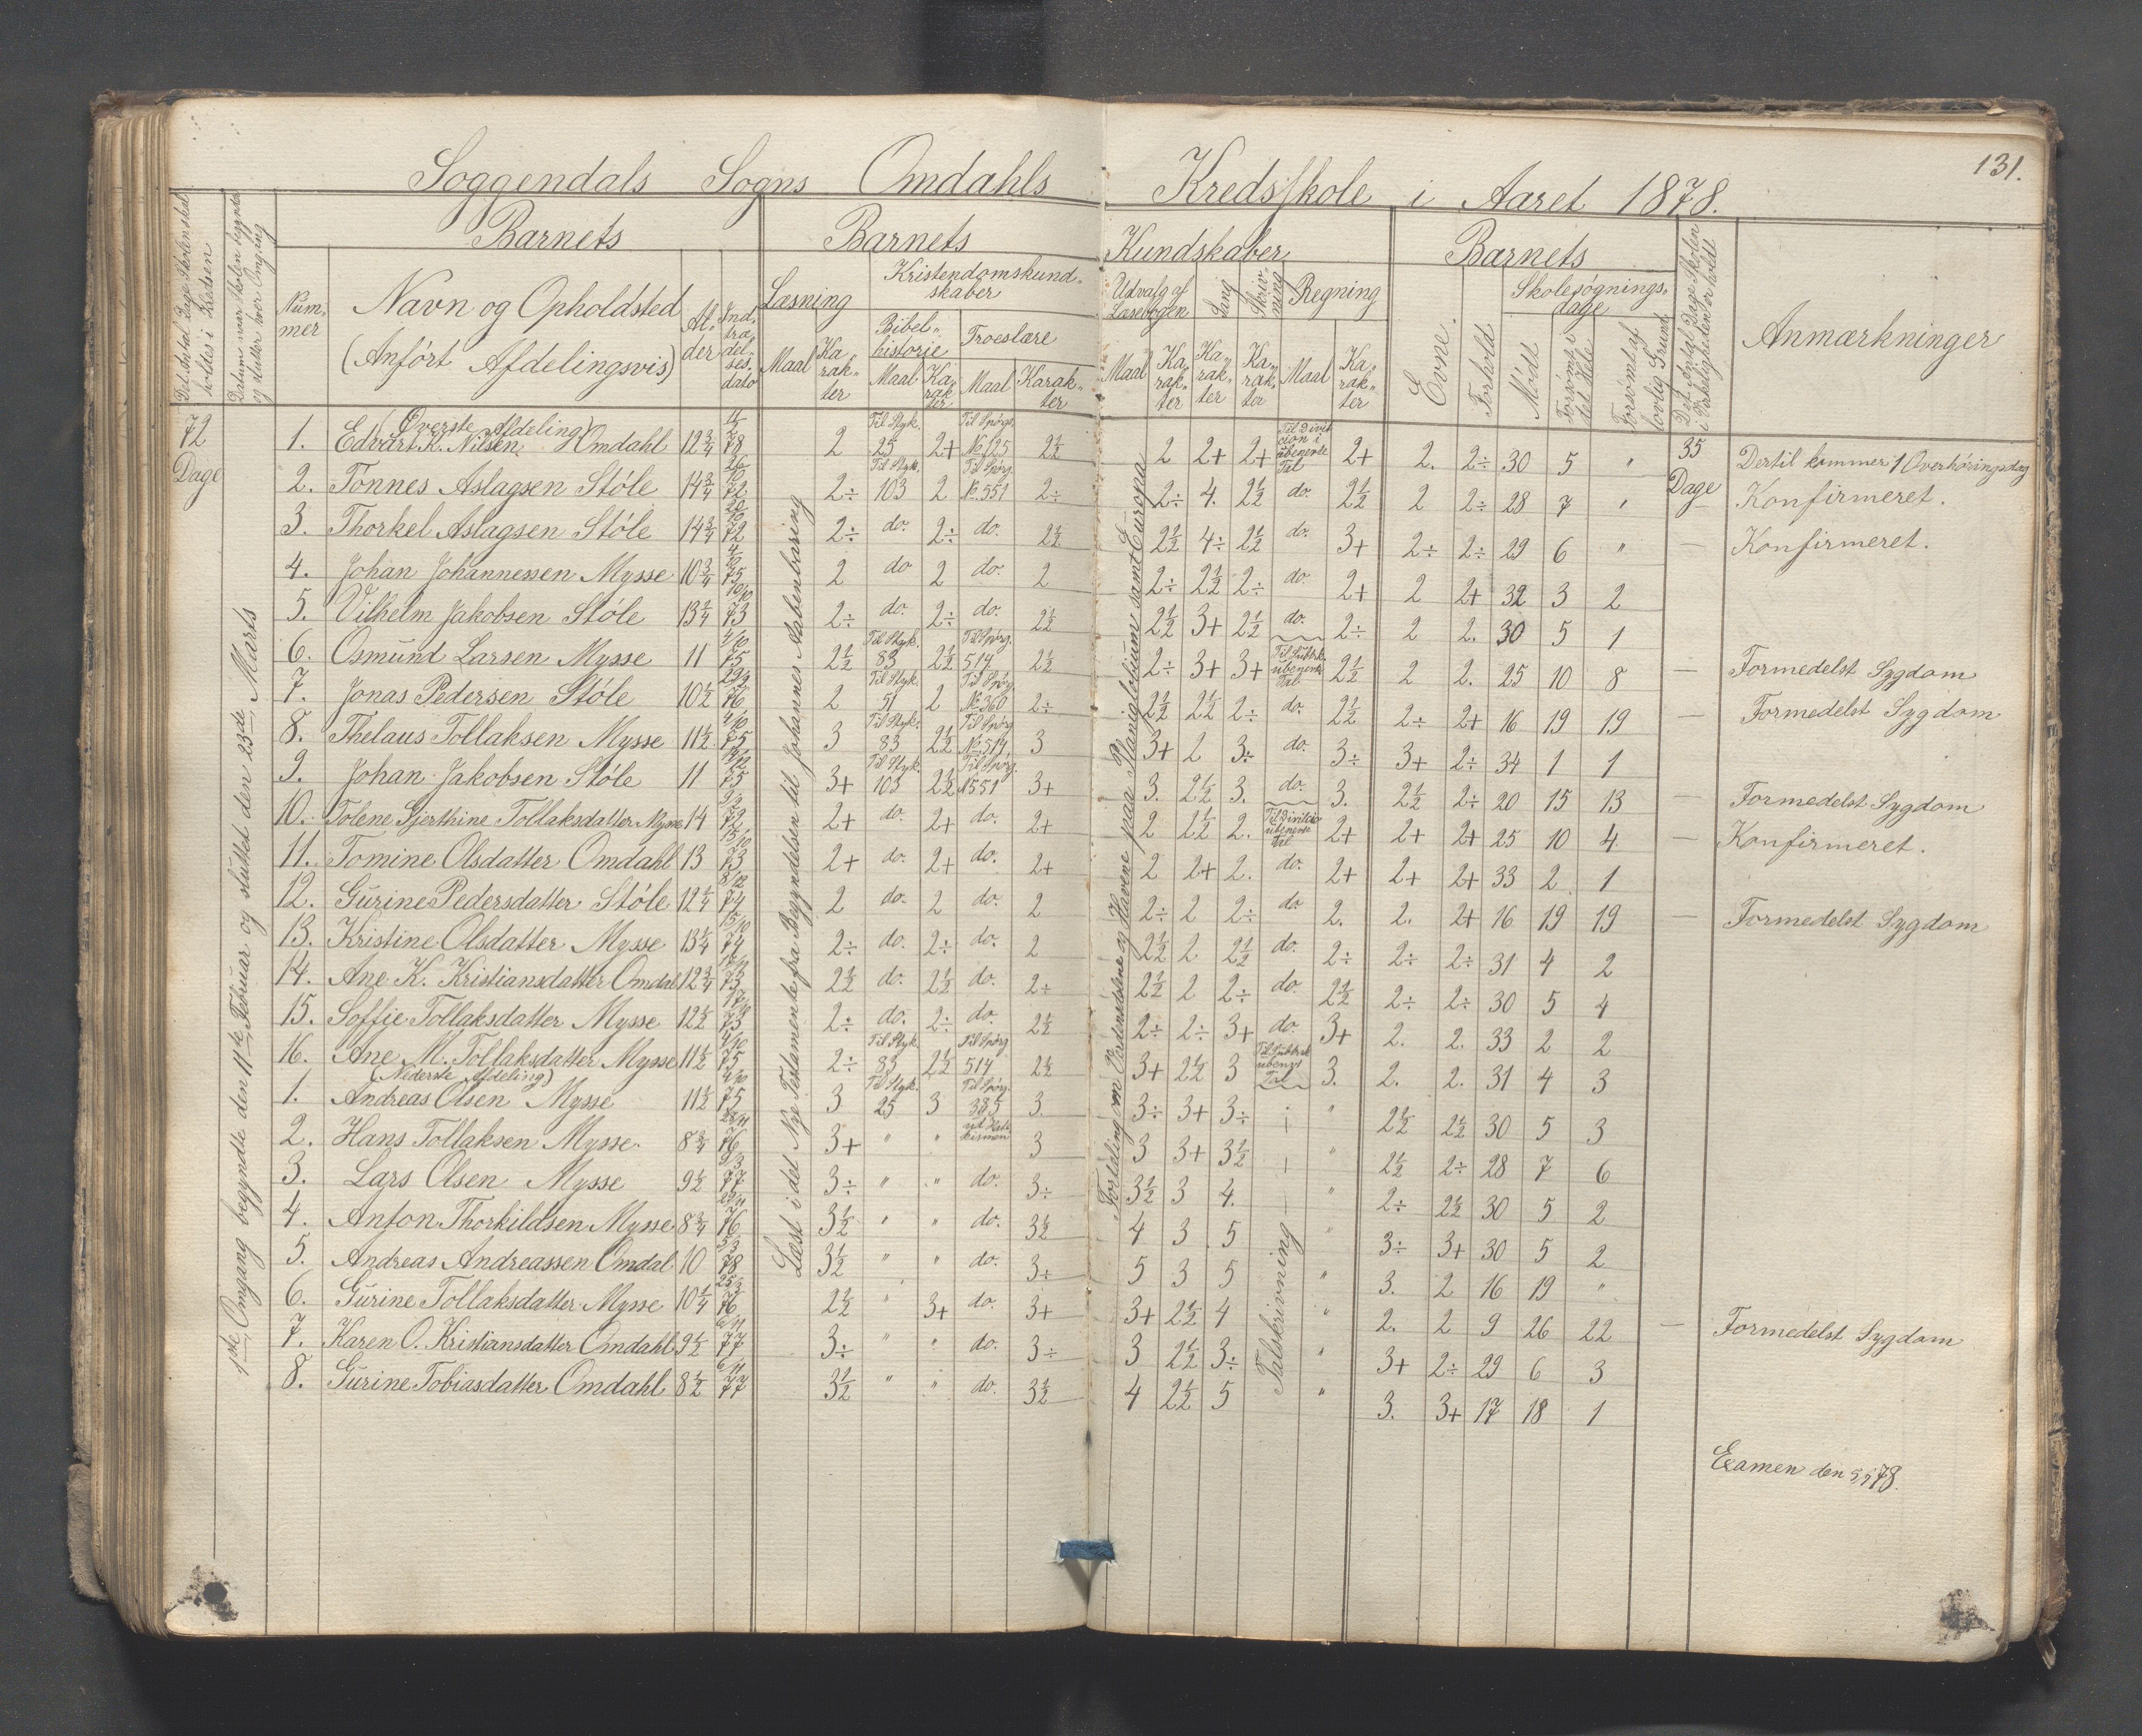 131.
Soggendals Sogns Omdahls Kredsskole i Aaret 1878.
Det Antal Dage Skolen skal holdes i Kredsen
Datum naar Skolen begynder og slutter hver Omgang
Barnets
Nummer
Navn og Opholdsted
(Anført Afdelingsvis)
Alder
Indtrædelsesdato
Barnets Kundskaber
Læsning
Maal
Karakter
Kristendomskundskaber
Bibelhistorie
Maal
Karakter
Troeslære
Maal
Karakter
Udvalg af Læsebogen
Maal
Karakter
Sang
Karakter
Skrivning
Karakter
Regning
Maal
Karakter
Barnets
Evne.
Forhold
Skolesøgningsdage
Mødt
Forsømt i det Hele
Forsømt af lovlig Grund
Det Antal Dage Skolen i Virkeligheden er holdt
Anmærkninger
72 Dage
1ste Omgang begyndte den 11te Februar og sluttet den 23de Marts
Læst i det Nye Testamente fra Begyndelsen til Johannes Aabenbaring
Fortelling om Verdensdelene og Havene paa Planiglobium samt Europa
Talskrivning
35 Dage
(Øverste Afdeling)
1. Edvart K. Nilsen Omdahl 12 3/4 78 2 Til Styk. 25 2+ Til Spörgs. No 125 2 1/2 2 2+ 2+ Til Division i ubenævnte Tal 2+ 2. 2÷ 30 5 " Dertil kommer 1 Overhøringsdag
2. Tønnes Aslagsen Støle 14 3/4 26/10 72 2÷ Til Styk. 103 2 Til Spörg. No. 551 2÷ 2÷ 4. 2 1/2 do. 2 1/2 2 2÷ 28 7 " Konfirmeret.
3. Thorkel Aslagsen Støle 14 3/4 20/10 72 2÷ do. 2÷ do. 2 1/2 2 1/2 4÷ 2 1/2 do. 3+ 2÷ 2÷ 29 6 " — Konfirmeret.
4. Johan Johannessen Mysse 10 3/4 75 2 do 2 do. 2 2÷ 2 1/2 2÷ do. 2+ 2 2+ 32 3 2
5. Vilhelm Jakobsen Støle 13 1/4 10/10 73 2÷ do. 2÷ do. 2 1/2 2 1/2 3+ 2 1/2 do. 2÷ 2 2. 30 5 1
6. Osmund Larsen Mysse 11 4/10 75 2 1/2 Til Styk. 83 2 1/2 Til Spörg. 514 2 1/2 2÷ 3+ 3+ Til Subtrk. ubenævnte Tal 2 1/2 2 2. 25 10 8 — Formedelst Sygdom
7. Jonas Pedersen Støle 10 1/2 76 2 Til Styk. 51 2 Til Spörg. No 360 2÷ 2 1/2 2 1/2 2÷ do. 2 1/2 2÷ 2+ 16 19 19 — Formedelst Sygdom
8. Thelaus Tollaksen Mysse 11 1/2 4/10 75 3 Til Styk. 83 2 1/2 Til Spörg No. 514. 3 3+ 2 3÷ do. 3÷ 3+ 2÷ 34 1 1
9. Johan Jakobsen Støle 11 75 3+ Til Styk. 103 2 1/2 Til Spörg. No 551 3+ 3. 2 1/2 3. do. 3. 2 1/2 2÷ 20 15 13 — Formedelst Sygdom
10. Tolene Gjerthine Tollaksdatter Mysse 14 72 2+ do. 2+ do. 2+ 2 2 1/2 2. Til Division ubenævnte Tal 2+ 2+ 2+ 25 10 4. — Konfirmeret.
11. Tomine Olsdatter Omdahl 13 15/10 73 2+ do. 2+ do. 2+ 2 2+ 2. do. 2+ 2+ 2+ 33 2 1
12. Gurine Pedersdatter Støle 12 1/4 8/12 74 2 do. 2 do. 2 2÷ 2 2÷ do 2. 2. 2+ 16 19 19 — Formedelst Sygdom
13. Kristine Olsdatter Mysse 13 1/4 15/10 74 2÷ do. 2÷ do. 2 2 1/2 2 2 1/2 do. 2÷ 2÷ 2÷ 31 4 2
14. Ane K. Kristiansdatter Omdal 12 3/4 73 2 1/2 do. 2 1/2 do. 2÷ 2 1/2 2 2÷ do. 2 1/2 2÷ 2÷ 30 5 4
15. Soffie Tollaksdatter Mysse 12 1/2 73 2÷ do. 2÷ do. 2 1/2 2÷ 2÷ 3+ do. 3+ 2. 2. 33 2 2
16. Ane M. Tollaksdatter Mysse 11 1/2 4/10 75 2÷ Til Styk. 83 2 1/2 Til Spörg 514 2 1/2 3+ 2 1/2 3 Til Subtrk ubenævt Tal 3. 2. 2. 31 4 3
(Nederste Afdeling)
1. Andreas Olsen Mysse 11 1/2 4/10 75 3 Til Styk. 25 3 Til Spörg. 385 3 3÷ 3+ 3÷ " 2 1/2 2 1/2 30 5 3
2. Hans Tollaksen Mysse. 8 3/4 76 3+ " " 3 3 3+ 3 1/2 " 2 1/2 2÷ 28 7 6
3. Lars Olsen Mysse 9 1/2 77 3÷ " " do. 3÷ 3 1/2 3 4. " 2÷ 2 1/2 30 5 2
4. Anton Thorkildsen Mysse 8 3/4 76 3 1/2 " " do. 3 1/2 4 3 5 " 3÷ 3+ 30 5 2
5. Andreas Andreassen Omdal 10 78 3 1/2 " " do. 3÷ 5 3 5 " 3. 2 16 19 "
6. Gurine Tollaksdatter Mysse 10 1/4 76 2 1/2 " 3+ do. 3+ 3+ 2 1/2 4 " 2. 2 9 26 22 — Formedelst Sygdom
7. Karen O. Kristiansdatter Omdahl 9 1/2 77 3÷ " " do. 3÷ 3 2 1/2 3÷ " 3+ 2÷ 29 6 3
8. Gurine Tobiasdatter Omdahl 8 1/2 77 3 1/2 " " do. 3 1/2 4 2 1/2 5 " 3. 3+ 17 18 1
Examen den 78.